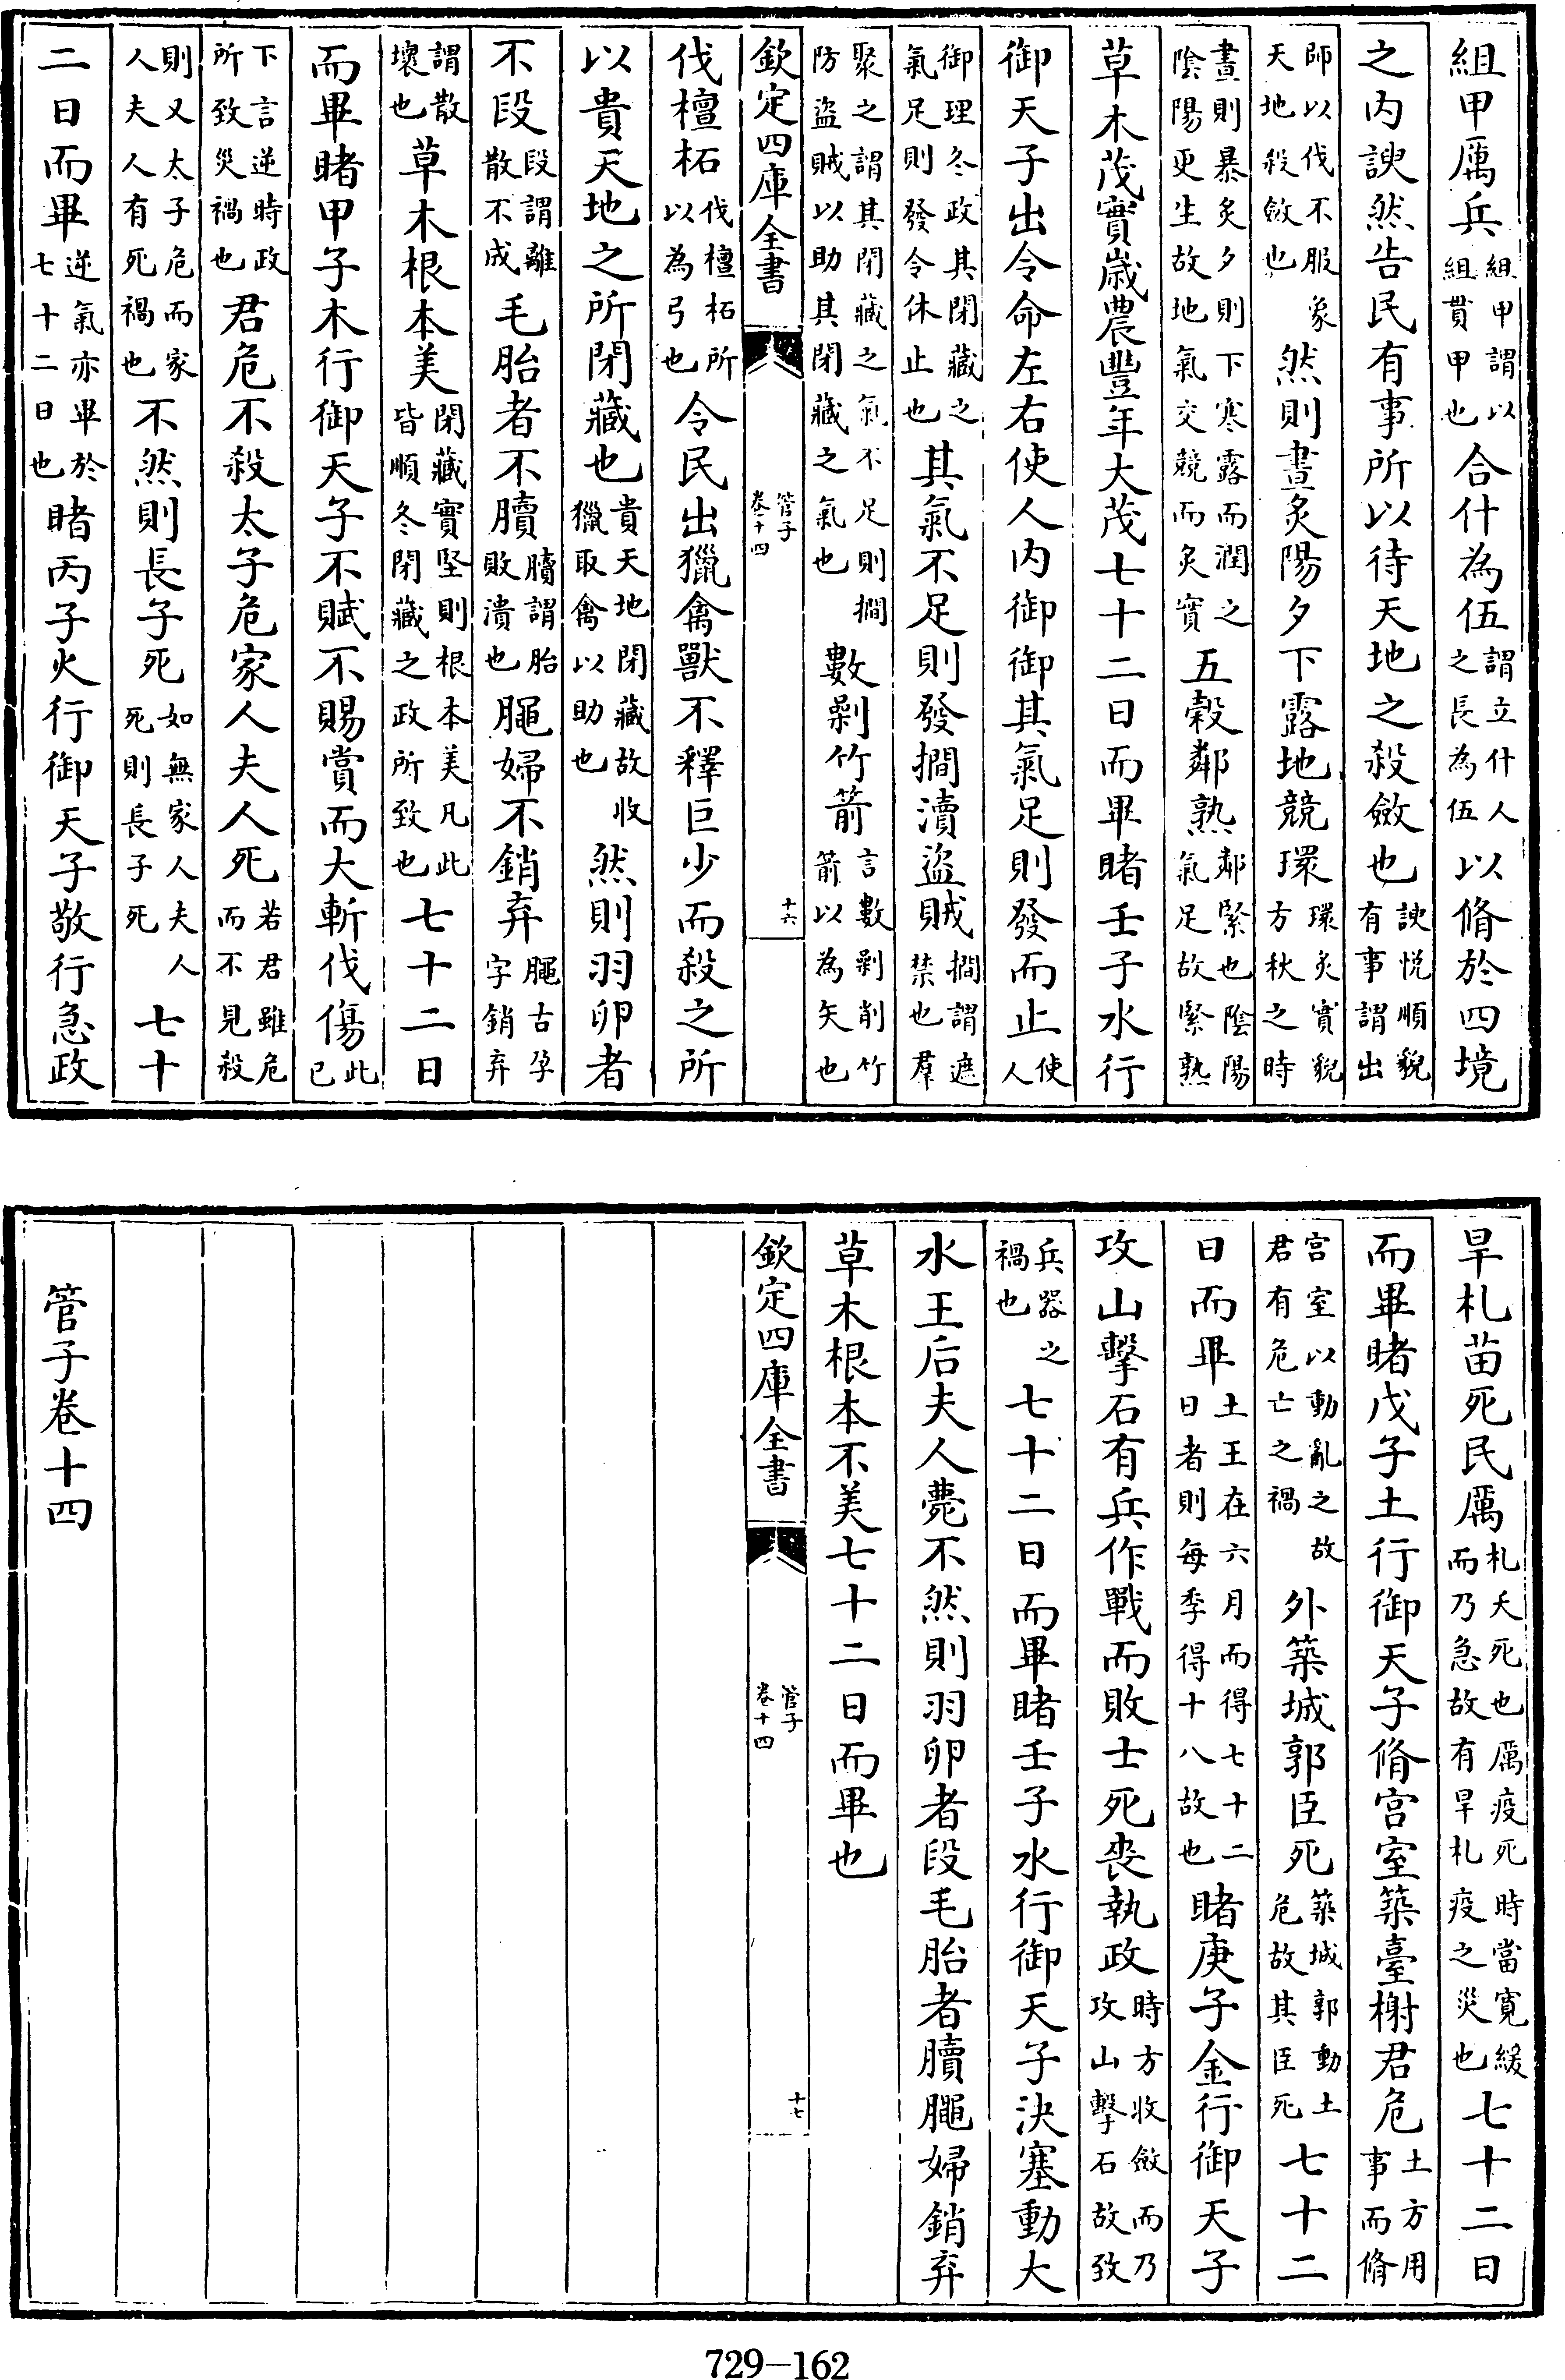 組甲厲兵組甲謂以組貫甲也合什為伍謂立什人之長為伍以脩於四境
之内諛然告民有事所以待天地之殺斂也諛悦順貌有事謂出
師以伐不服象天地殺斂也然則晝炙陽夕下露地競環環炙實貌方秋之時
晝則暴炙夕則下寒露而潤之陰陽更生故地氣交競而炙實五穀鄰熟鄰緊也陰陽氣足故緊熟
草木茂實歲農豐年大茂七十二日而畢睹壬子水行
御天子出令命左右使人内御御其氣足則發而止使人
御理冬政其閉藏之氣足則發令休止也其氣不足則發撊瀆盜賊撊謂遮禁也羣
聚之謂其閉藏之氣不足則撊防盜賊以助其閉藏之氣也數剝竹箭言數剝削竹箭以為矢也
欽定四庫全書
管子
卷十四
十六
伐檀柘伐檀柘所以為弓也令民出獵禽獸不釋巨少而殺之所
以貴天地之所閉藏也貴天地閉藏故收獵取禽以助也然則羽卵者
不段段謂離散不成毛胎者不贕贕謂胎敗潰也䐴婦不銷弃䐴古孕字銷弃
謂散壞也草木根本美閉藏實堅則根本美凡此皆順冬閉藏之政所致也七十二日
而畢睹甲子木行御天子不賦不賜賞而大斬伐傷此已
下言逆時政所致災禍也君危不殺太子危家人夫人死若君雖危而不見殺
則又太子危而家人夫人有死禍也不然則長子死如無家人夫人死則長子死七十
二日而畢逆氣亦畢於七十二日也睹丙子火行御天子敬行急政
旱札苗死民厲札夭死也厲疫死時當寛緩而乃急故有旱札疫之災也七十二日
而畢睹戊子土行御天子脩宫室築臺榭君危土方用事而脩
宫室以動亂之故君有危亡之禍外築城郭臣死築城郭動土危故其臣死七十二
日而畢土王在六月而得七十二日者則每季得十八故也睹庚子金行御天子
攻山擊石有兵作戰而敗士死喪執政時方收斂而乃攻山擊石故致
兵器之禍也七十二日而畢睹壬子水行御天子決塞動大
水王后夫人薨不然則羽卵者段毛胎者贕䐴婦銷弃
草木根本不美七十二日而畢也
欽定四庫全書
管子
卷十四
十七
管子卷十四
729-162